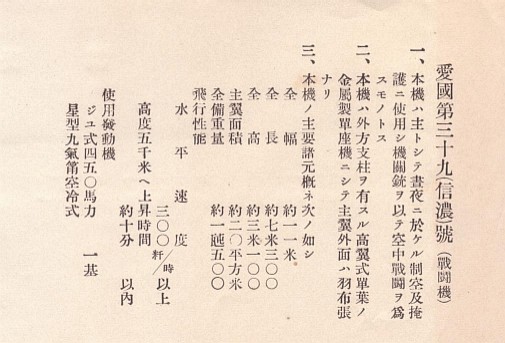 愛國第三十九(信濃)號(戰鬪機)
一、本機ハ主トシテ晝夜ニ於ケル制空及掩
護ニ使用シ機關銃ヲ以テ空中戰鬪ヲ爲
スモノトス
二、本機ハ外方支柱ヲ有スル高翼式單葉ノ
金屬製單座機ニシテ主翼外面ハ羽布張
ナリ
三、本機ノ主要諸元概ネ次ノ如シ
全幅 約一一米
全長 約七米三〇〇
全高 約三米一〇〇
主翼面積 約二〇平方米
全備重量 約一瓲五〇〇
飛行性能
水平速度 三〇〇粁/時以上
高度五千米ヘ上昇時間
約十分以內
使用發動機
ジユ式四五〇馬力 一基
星型九氣筩空冷式